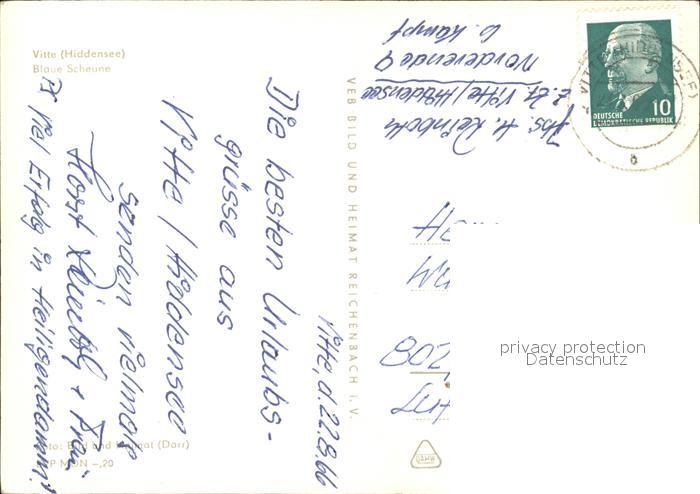 Vitte (Hiddensee)
Blaue Scheune
Vitte, d. 22.8.66
Die besten Urlaubs-
grüsse aus
Vitte / Hiddensee
senden vielmals
Horst + Frau
Viel Erfolg in Heiligendamm!
Foto: Bild und Heimat (Darr)
MDN -,20
VEB BILD UND HEIMAT REICHENBACH I. V.
Abs. H.
z. Zt. Vitte / Hiddensee
Norderende 9
b. Kampf
10
DEUTSCHE
DEMOKRATISCHE REPUBLIK
802
privacy protection
Datenschutz